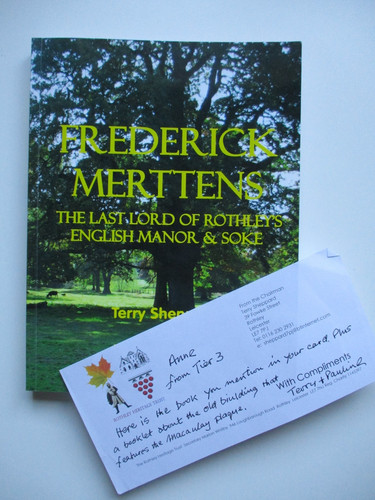 FREDERICK
MERTTENS
THE LAST LORD OF ROTHLEY'S
ENGLISH MANOR & SOKE
Terry Shep
From the Chairman
Terry Sheppard
39 Fowke Street
Rothley
Leicester
LE7 7PJ
tel: 0116 230 2931
Anne
from Tier 3
ROTHLEY HERITAGE TRUST
Here is the book you mention in your card. Plus
a booklet about the old biulding that
features the Macaulay plaque.
With Compliments
Terry & Pauline